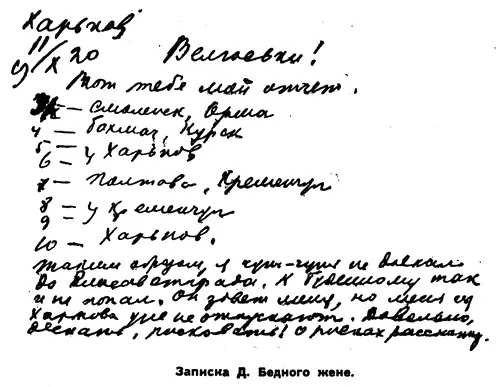 Харьков
11/X 20
9
Вот тебе мой отчет.
3/X — Смоленск, Орша
4 — Бахмач, Курск
5 —
6 — } Харьков
7 — Полтава, Кременчуг
8 —
9 — } Кременчуг
10 — Харьков.
Таким образом, я чуть-чуть не доехал
до Елисаветграда. К Буденному так
и не попал. Он зовет меня, но меня из
Харькова уже не отпускают. Довольно,
дескать, рисковать! О рисках расскажу.
Записка Д. Бедного жене.